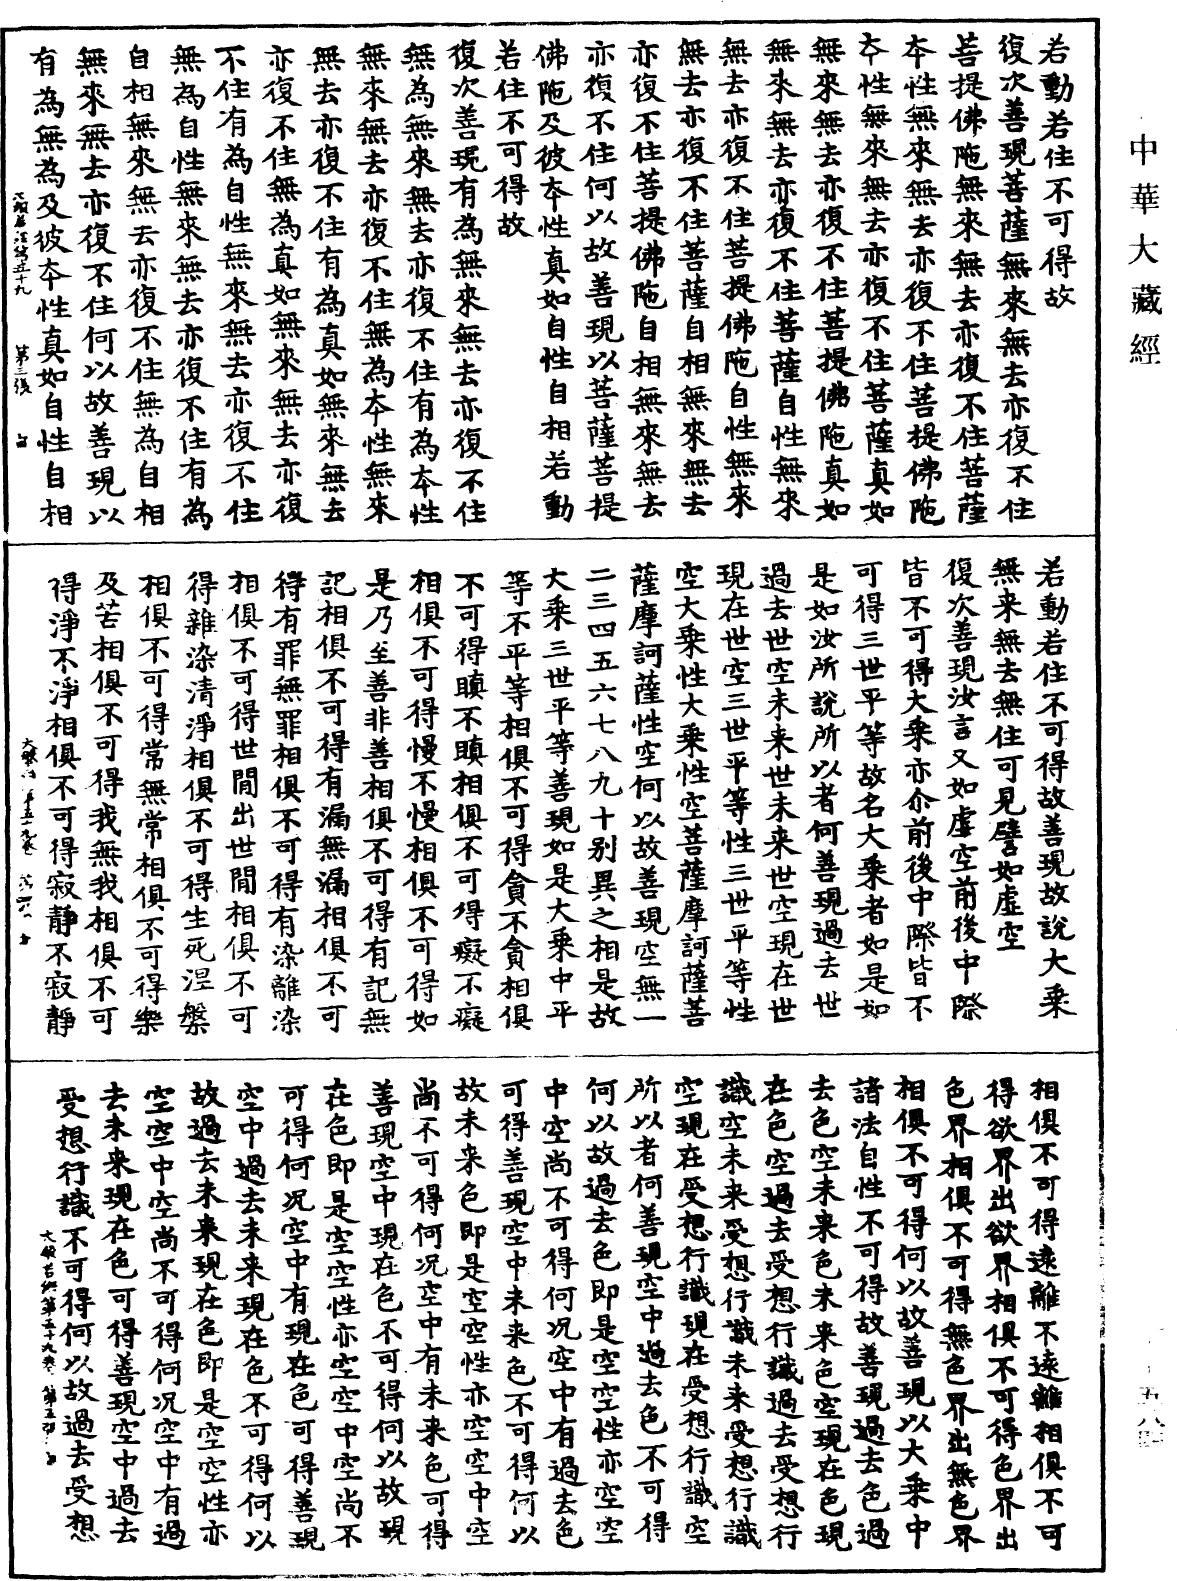 中華大藏經
若動若住不可得故
復次善現菩薩無來無去亦復不住
菩提佛陁無來無去亦復不住菩薩
本性無來無去亦復不住菩提佛陁
本性無來無去亦復不住菩薩真如
無來無去亦復不住菩提佛陁真如
無來無去亦復不住菩薩自性無來
無去亦復不住菩提佛陁自性無來
無去亦復不住菩薩自相無來無去
亦復不住菩提佛陁自相無來無去
亦復不住何以故善現以菩薩菩提
佛陁及彼本性真如自性自相若動
若住不可得故
復次善現有為無來無去亦復不住
無為無來無去亦復不住有為本性
無來無去亦復不住無為本性無來
無去亦復不住有為真如無來無去
亦復不住無為真如無來無去亦復
不住有為自性無來無去亦復不住
無為自性無來無去亦復不住有為
自相無來無去亦復不住無為自相
無來無去亦復不住何以故善現以
有為無為及彼本性真如自性自相
第三張
若動若住不可得故善現故說大乘
無来無去無住可見譬如虛空
復次善現汝言又如虛空前後中際
皆不可得大乘亦尒前後中際皆不
可得三世平等故名大乘者如是如
是如汝所說所以者何善現過去世
過去世空未来世未来世空現在世
現在世空三世平等性三世平等性
空大乘性大乘性空菩薩摩訶薩菩
薩摩訶薩性空何以故善現空無一
二三四五六七八九十別異之相是故
大乘三世平等善現如是大乘中平
等不平等相俱不可得貪不貪相俱
不可得瞋不瞋相俱不可得癡不癡
相俱不可得慢不慢相俱不可得如
是乃至善非善相俱不可得有記無
記相俱不可得有漏無漏相俱不可
得有罪無罪相俱不可得有染離染
相俱不可得世間出世間相俱不可
得雜染清淨相俱不可得生死涅槃
相俱不可得常無常相俱不可得樂
及苦相俱不可得我無我相俱不可
得淨不淨相俱不可得寂靜不寂靜
相俱不可得遠離不遠離相俱不可
得欲界出欲界相俱不可得色界出
色界相俱不可得無色界出無色界
相俱不可得何以故善現以大乘中
諸法自性不可得故善現過去色過
去色空未来色未来色空現在色現
在色空過去受想行識過去受想行
識空未来受想行識未来受想行識
空現在受想行識現在受想行識空
所以者何善現空中過去色不可得
何以故過去色即是空空性亦空空
中空尚不可得何況空中有過去色
可得善現空中未来色不可得何以
故未来色即是空空性亦空空中空
尚不可得何況空中有未来色可得
善現空中現在色不可得何以故現
在色即是空空性亦空空中空尚不
可得何況空中有現在色可得善現
空中過去未来現在色不可得何以
故過去未来現在色即是空空性亦
空空中空尚不可得何況空中有過
去未来現在色可得善現空中過去
受想行識不可得何以故過去受想